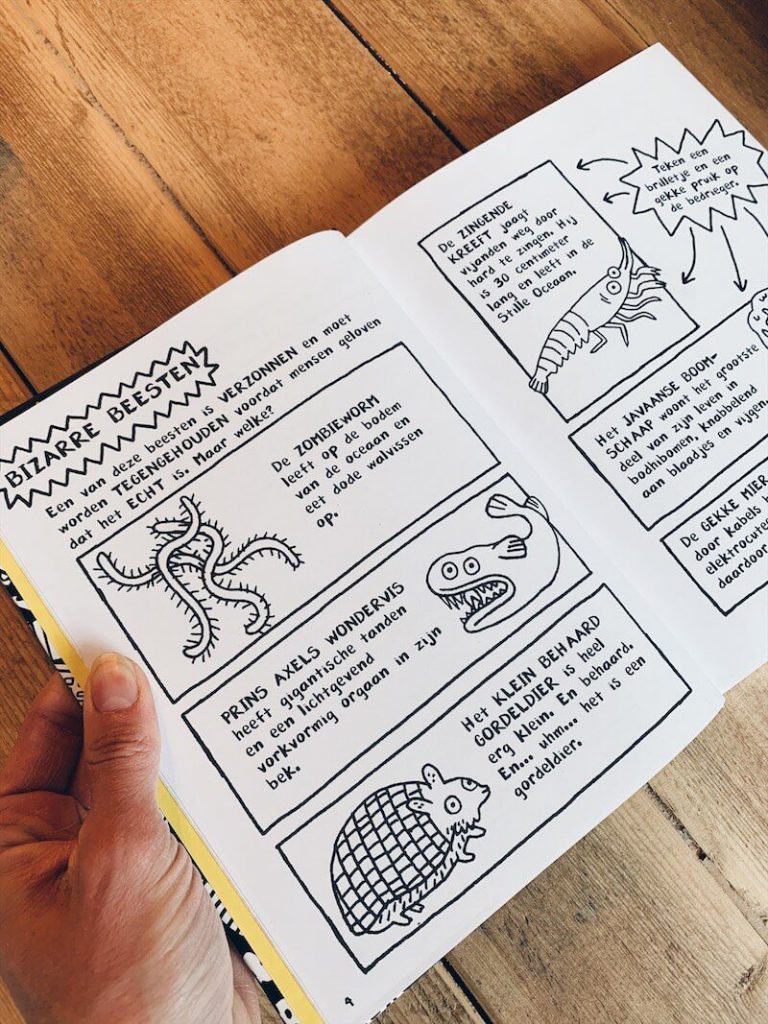 BIZARRE BEESTEN
Een van deze beesten is VERZONNEN en moet
worden TEGENGEHOUDEN voordat mensen geloven
dat het ECHT is. Maar welke?
De ZOMBIEWORM
leeft op de bodem
van de oceaan en
eet dode walvissen
op.
PRINS AXELS WONDERVIS
heeft gigantische tanden
en een lichtgevend
vorkvormig orgaan in zijn
bek.
Het KLEIN BEHAARD
GORDELDIER is heel
erg klein. En behaard.
En... uhm... het is een
gordeldier.
4
De ZINGENDE
KREEFT jaagt
vijanden weg door
hard te zingen. Hij
is 30 centimeter
lang en leeft in de
Stille Oceaan.
Teken een
brilletje en een
gekke pruik op
de bedrieger.
Het JAVAANSE BOOM-
SCHAAP woont het grootste
deel van zijn leven in
badhibomen, knabbelend
aan blaadjes en vijgen.
De GEKKE MIER
door kabels
elektrocute
daardoor